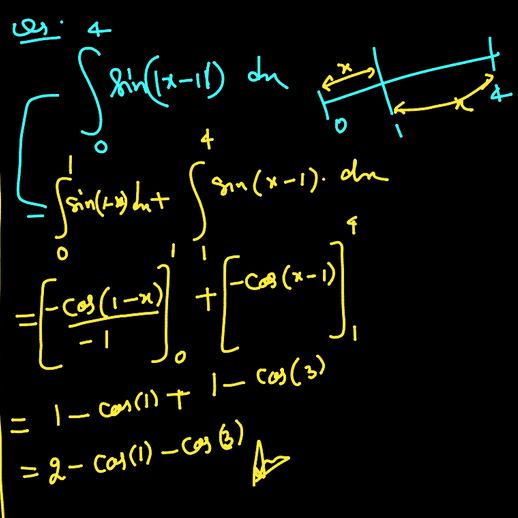 Ques:
∫₀⁴ sin(|x-1|) dx
x x
0 1 4
= ∫₀¹ sin(1-x) dx + ∫₁⁴ sin(x-1). dx
= [-cos(1-x)/-1]₀¹ + [-cos(x-1)]₁⁴
= 1 - cos(1) + 1 - cos(3)
= 2 - cos(1) - cos(3)